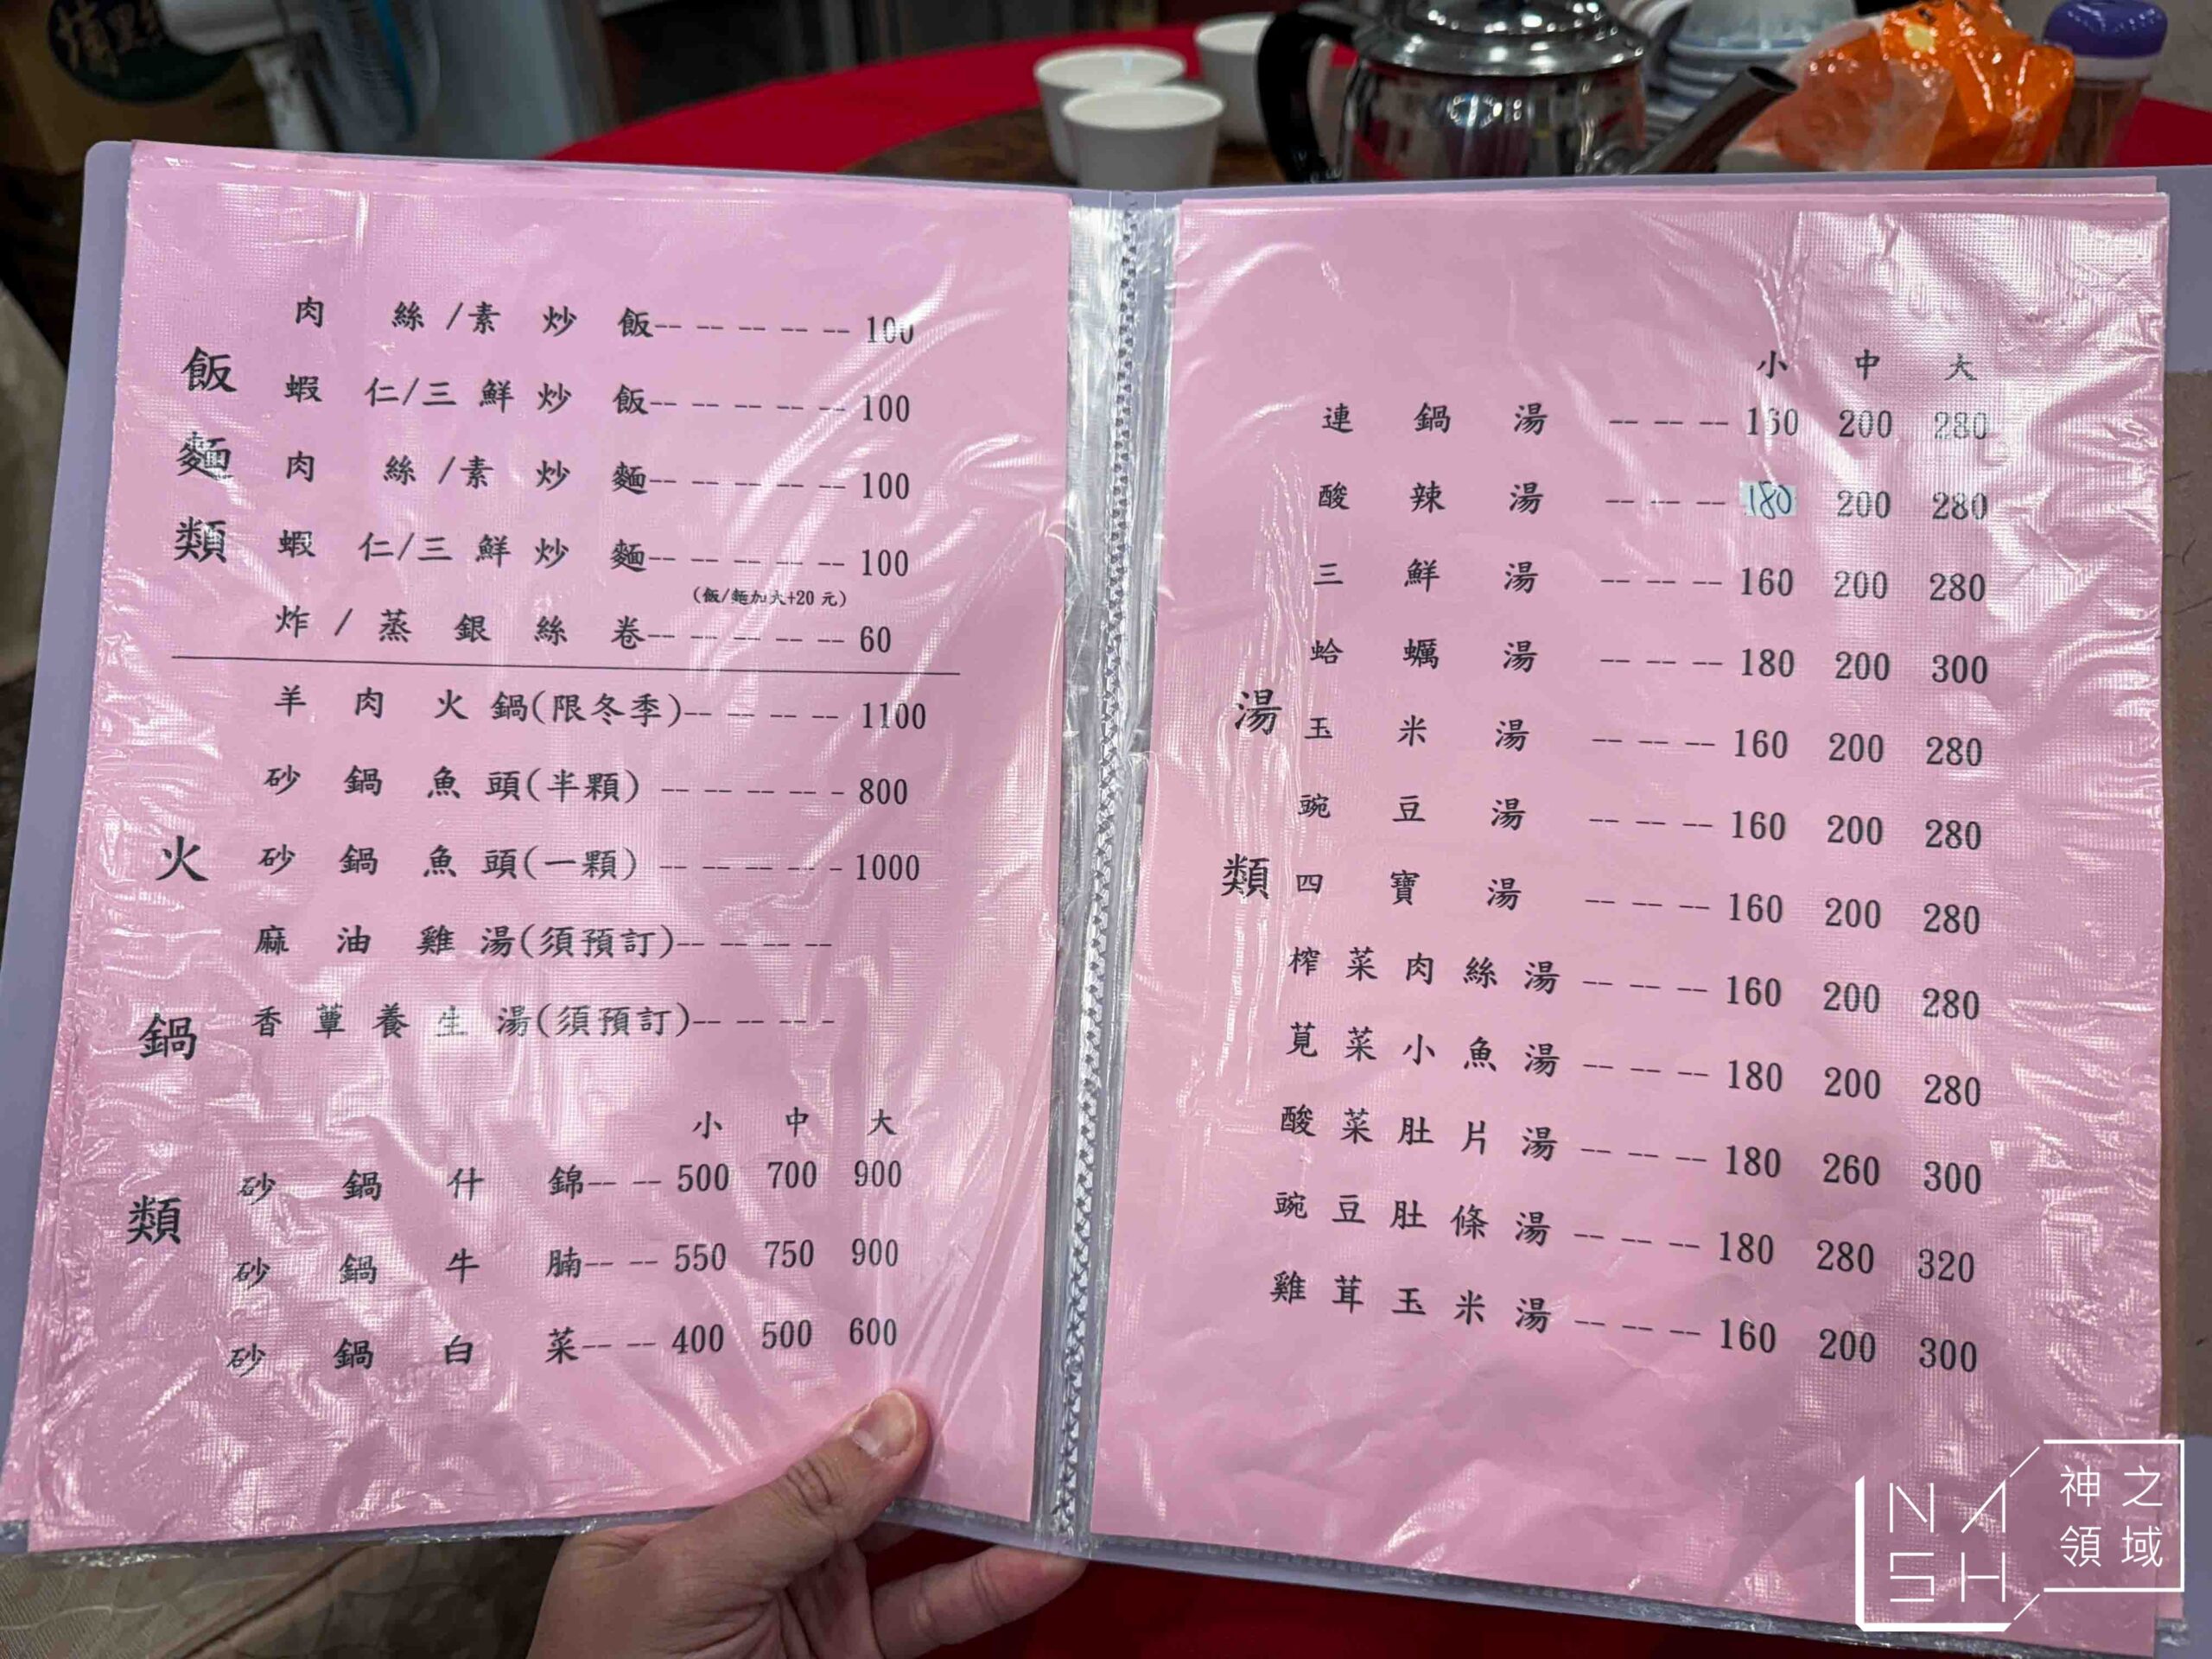 飯麵類
肉絲/素炒飯-- -- -- -- -- 100
蝦仁/三鮮炒飯-- -- -- -- -- 100
肉絲/素炒麵-- -- -- -- -- 100
蝦仁/三鮮炒麵-- -- -- -- -- 100
(飯/麵加大+20元)
炸/蒸銀絲卷-- -- -- -- -- 60
火鍋類
羊肉火鍋(限冬季)-- -- -- -- 1100
砂鍋魚頭(半顆) -- -- -- -- - 800
砂鍋魚頭(一顆) -- -- -- -- - 1000
麻油雞湯(須預訂)-- -- -- --
香蕈養生湯(須預訂)-- -- -- -
小 中 大
砂鍋什錦-- -- 500 700 900
砂鍋牛腩-- -- 550 750 900
砂鍋白菜-- -- 400 500 600
湯類
小 中 大
連鍋湯 -- -- -- 160 200 280
酸辣湯 -- -- -- 180 200 280
三鮮湯 -- -- -- 160 200 280
蛤蠣湯 -- -- -- 180 200 300
玉米湯 -- -- -- 160 200 280
豌豆湯 -- -- -- 160 200 280
四寶湯 -- -- -- 160 200 280
榨菜肉絲湯 -- -- -- 160 200 280
莧菜小魚湯 -- -- -- 180 200 280
酸菜肚片湯 -- -- -- 180 260 300
豌豆肚條湯 -- -- -- 180 280 320
雞茸玉米湯 -- -- -- 160 200 300
NASH
神之領域